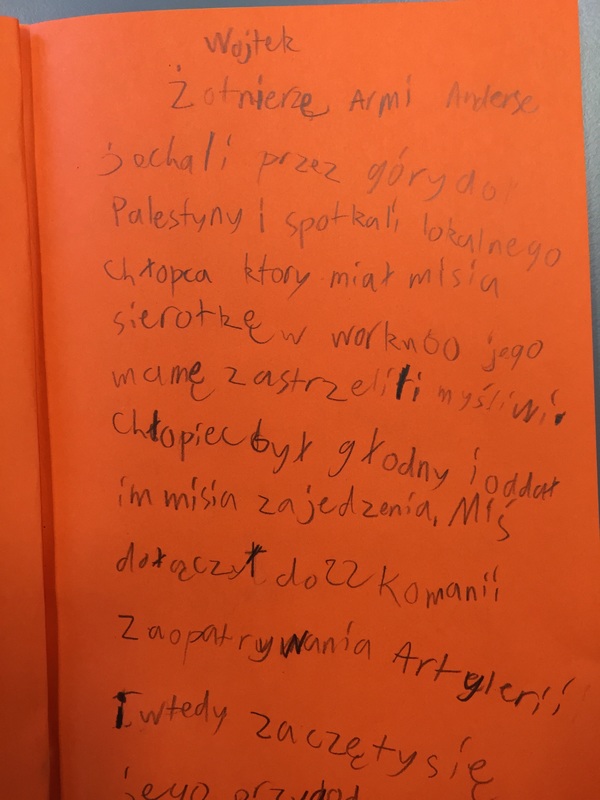 Wojtek
Żołnierzę Armi Anderse
jechali przez góry do
Palestyny i spotkali lokalnego
chłopca ktory miał misia
sierotkę w worku bo jego
mamę zastrzelili myśliwi.
Chłopiec był głodny i oddał
im misia zajedzenia, Miś
dołączył do 22 Komanii
Zaopatrywania Artylerii
I wtedy zaczęły się
jego przygod